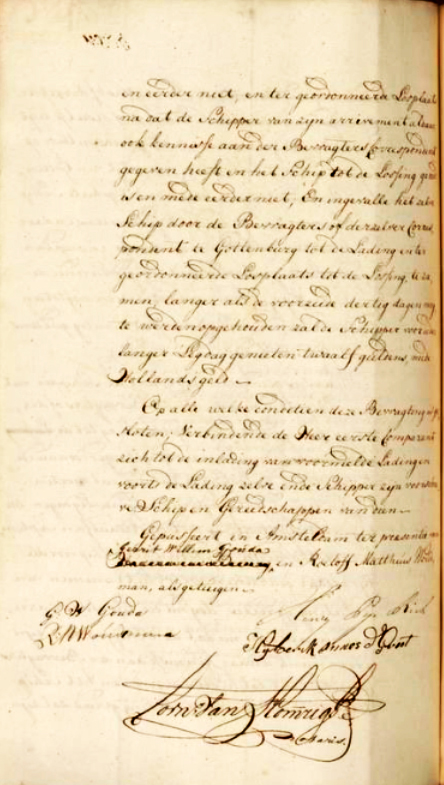 en eerder niet, en ter geordonneerde Loosplaats
na dat de Schipper van zijn arrivement aldaar
ook kennisse aan der Bevragters Correspondent
gegeven heeft en het Schip tot de Lossing gereed
is en mede eerder niet, En ingevalle het zelve
Schip door de Bevragters of derzelver Corres,
pondent te Gottenburg tot de Lading en ter
geordonneerde Loosplaats tot de Lossing, te za,
men, langer als de voorzeide dertig dagen
te werden opgehouden zal de Schipper voor
langer Legdag genieten twaalf guldens,
Hollands geld.
Op alle welke conditien deze Bevragting is ge
sloten; Verbindende de Heer eerste Comparant
zich tot de inlading van voormelde Ladingen
voorts de Lading zelve en de Schipper zijn voorschr
ve Schip en Gereedschappen van dien.
Gepasseert in Amsteldam ter presentie van
Gerrit Willem Gouda
en Roeloff Matthias
man, als getuigen.
G W Gouda
Hyberik
Corn. van Homrigh
Notaris.